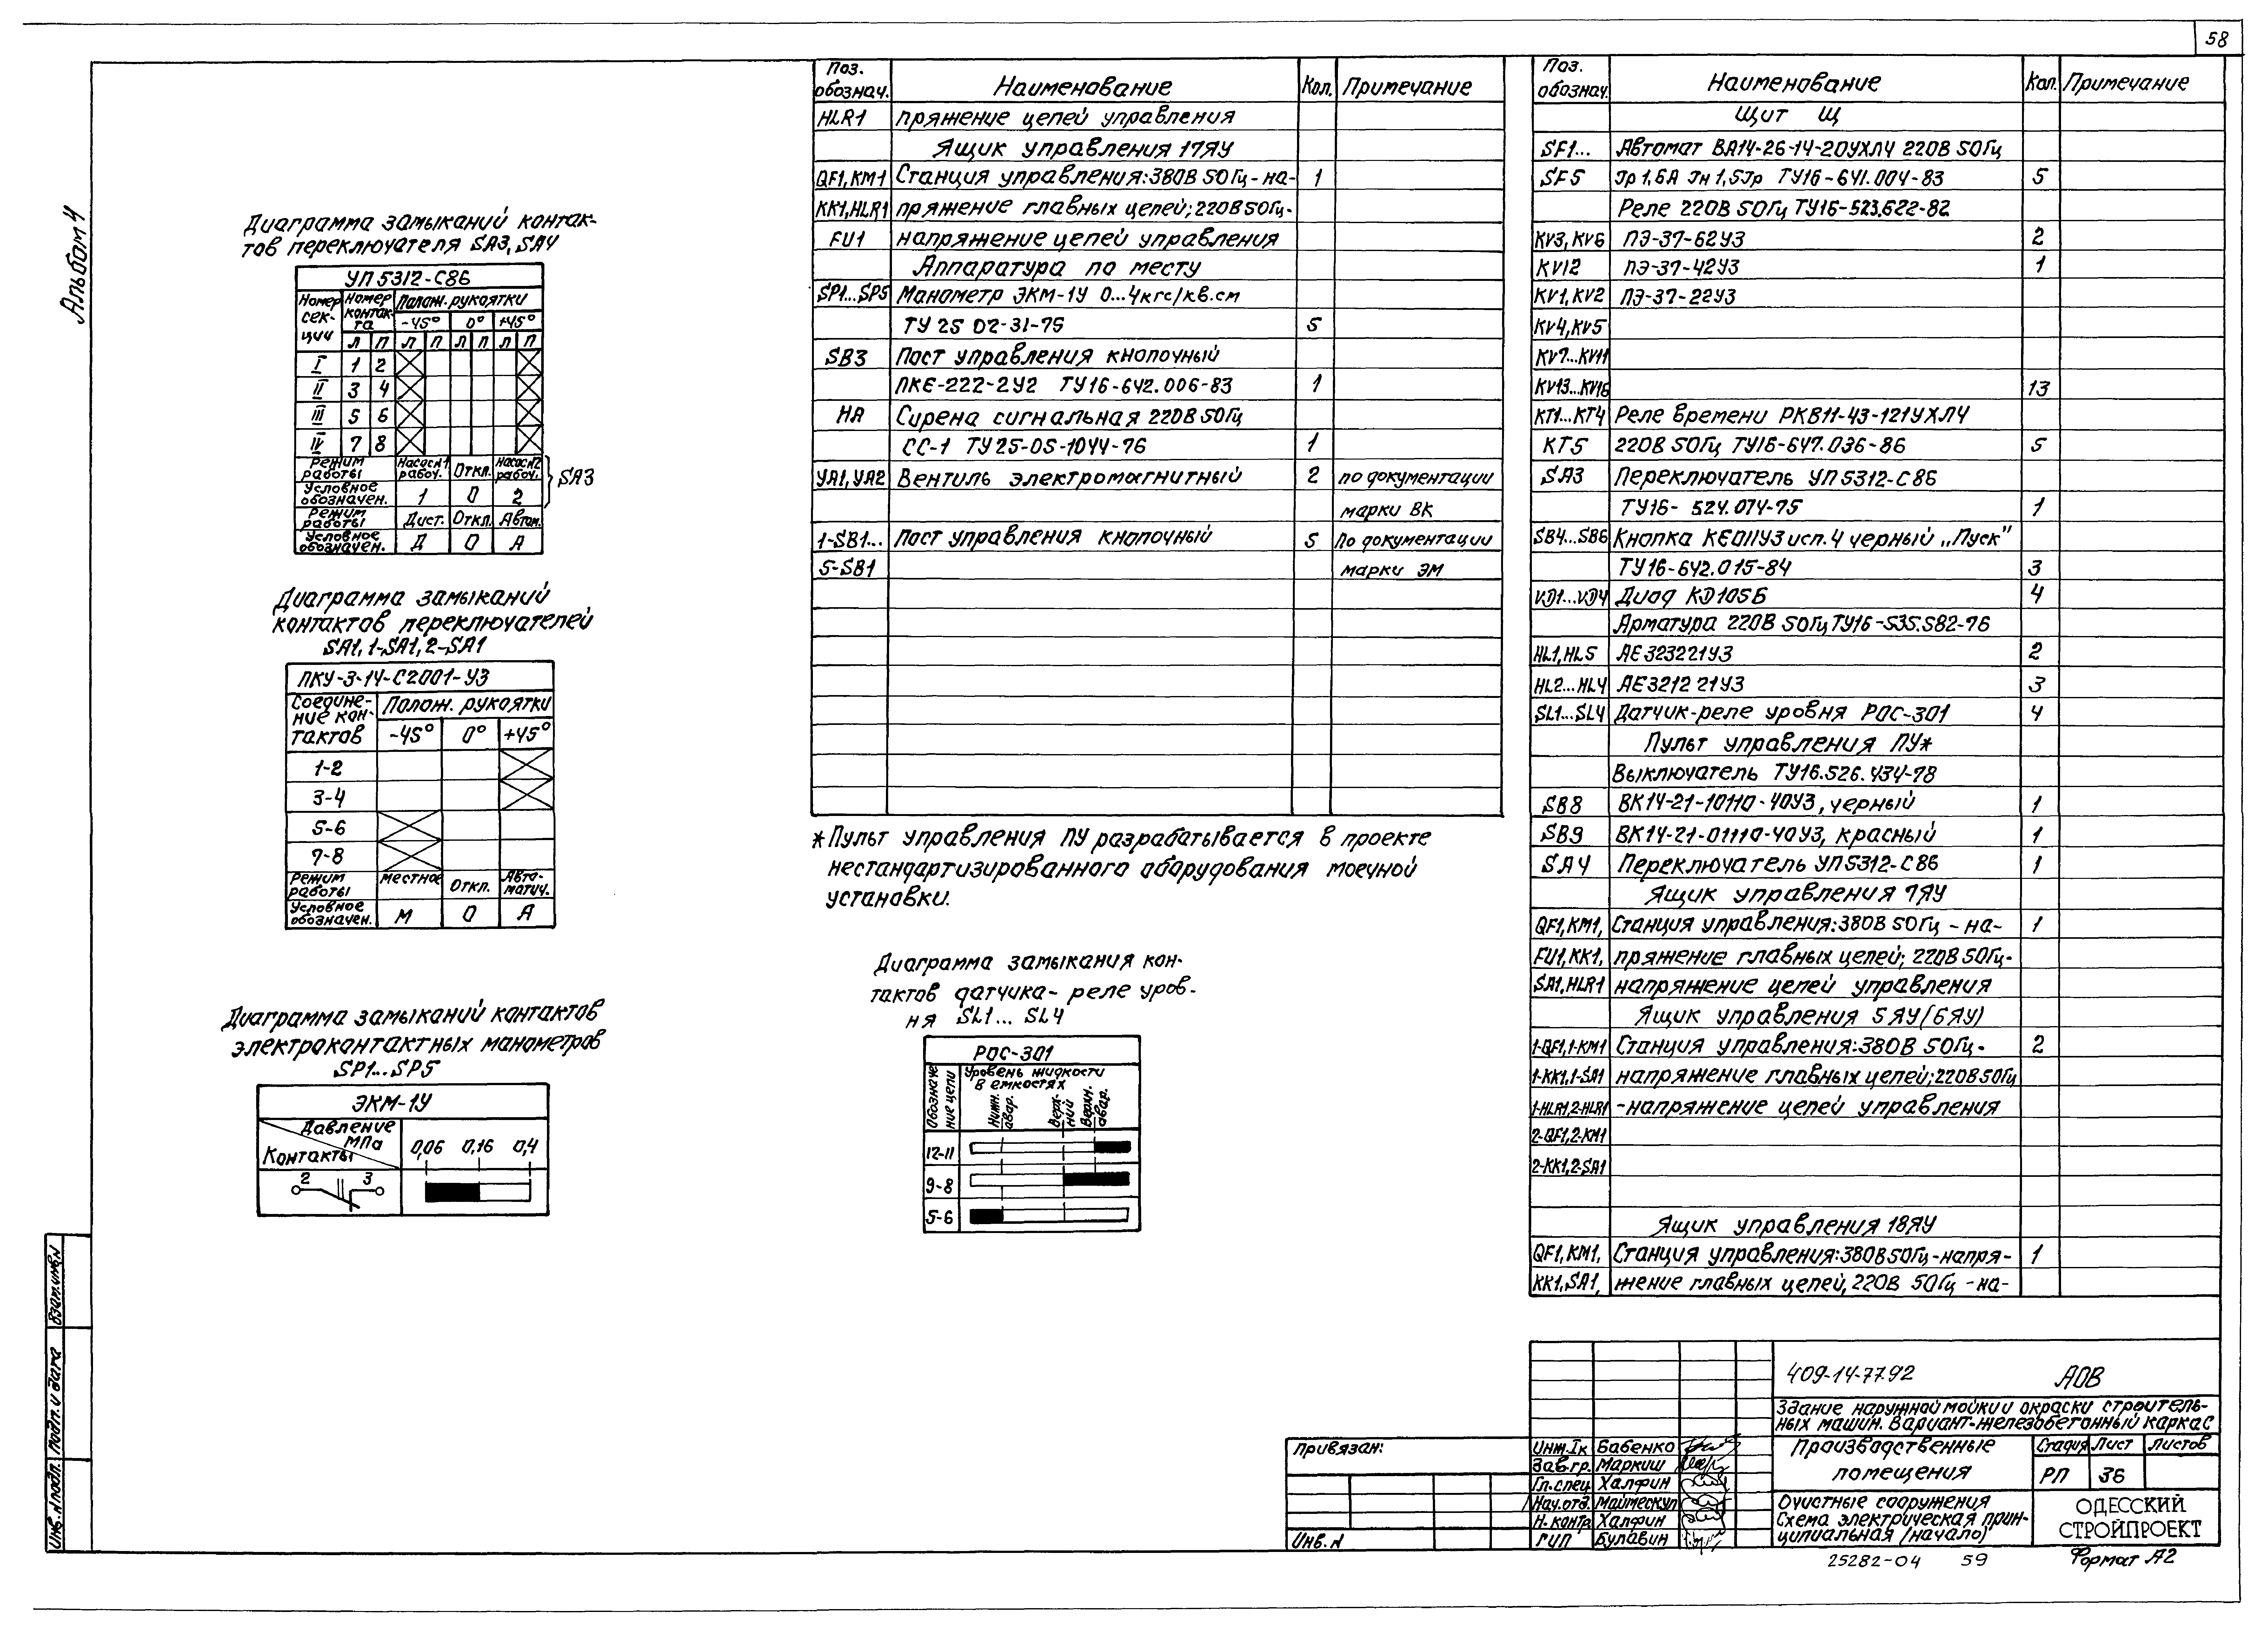 58
Альбом 4
Диаграмма замыканий контак-
тов переключателя SA3, SA4
УП 5312-С86
Номер сек-ции Номер контак-та Полож. рукоятки
-45° 0° +45°
Л П Л П Л П Л П
I 1 2
II 3 4
III 5 6
IV 7 8
Режим работы Насос N1 рабоч. Откл. Насос N2 рабоч.
Условное обозначен. 1 0 2
SA3
Режим работы Дист. Откл. Автом.
Условное обозначен. Д О А
Диаграмма замыканий
контактов переключателей
SA1, 1-SA1, 2-SA1
ПКУ-3-14-С2001-У3
Соедине-ние кон-тактов Полож. рукоятки
-45° 0° +45°
1-2
3-4
5-6
7-8
Режим работы местное Откл. Авто-матич.
Условное обозначен. М О А
Диаграмма замыканий контактов
электроконтактных манометров
SP1...SP5
ЭКМ-1У
Давление МПа
Контакты
0,06 0,16 0,4
2 3
Поз. обознач. Наименование Кол. Примечание
HLR1 пряжение цепей управления
Ящик управления 17ЯУ
QF1, KM1 Станция управления: 380В 50Гц - на- 1
KK1, HLR1 пряжение главных цепей; 220В 50Гц-
FU1 напряжение цепей управления
Аппаратура по месту
SP1...SP5 Манометр ЭКМ-1У 0...4кгс/кв.см
ТУ 25 02-31-75 5
SB3 Пост управления кнопочный
ПКЕ-222-2У2 ТУ16-642.006-83 1
HA Сирена сигнальная 220В 50Гц
СС-1 ТУ25-05-1044-76 1
YA1, YA2 Вентиль электромагнитный 2 по документации
марки ВК
1-SB1... Пост управления кнопочный 5 По документации
5-SB1 марки ЭМ
* Пульт управления ПУ разрабатывается в проекте
нестандартизированного оборудования моечной
установки.
Диаграмма замыкания кон-
тактов датчика- реле уров-
ня SL1... SL4
РОС-301
Обозначе ние цепи Уровень жидкости в емкостях
Нижн. авар. Верх-ний Верхн. авар.
12-11
9-8
5-6
Поз. обознач. Наименование Кол. Примечание
Щит Щ
SF1... Автомат ВА14-26-14-20УХЛ4 220В 50Гц
SF5 Iр 1,6А Iн 1,5Iр ТУ16-641.004-83 5
Реле 220В 50Гц ТУ16-523.622-82
KV3, KV6 ПЭ-37-62У3 2
KV12 ПЭ-37-42У3 1
KV1, KV2 ПЭ-37-22У3
KV4, KV5
KV7...KV11
KV13...KV18 13
KT1...KT4 Реле времени РКВ11-43-121УХЛ4
KT5 220В 50Гц ТУ16-647.036-86 5
SA3 Переключатель УП5312-С86
ТУ16- 524.074-75 1
SB4...SB6 Кнопка КЕ011У3 исп.4 черный „Пуск"
ТУ16-642.015-84 3
VD1...VD4 Диод КД105Б 4
Арматура 220В 50Гц ТУ16-535.582-76
HL1, HL5 АЕ323221У3 2
HL2...HL4 АЕ321221У3 3
SL1...SL4 Датчик-реле уровня РОС-301 4
Пульт управления ПУ*
Выключатель ТУ16.526.434-78
SB8 ВК14-21-10110-40У3, черный 1
SB9 ВК14-21-01110-40У3, красный 1
SA4 Переключатель УП5312-С86 1
Ящик управления 7ЯУ
QF1, KM1, Станция управления: 380В 50Гц - на- 1
FU1, KK1, пряжение главных цепей; 220В 50Гц-
SA1, HLR1 напряжение цепей управления
Ящик управления 5ЯУ(6ЯУ)
1-QF1, 1-KM1 Станция управления: 380В 50Гц- 2
1-KK1, 1-SA1 напряжение главных цепей; 220В 50Гц
1-HLR1, 2-HLR1 -напряжение цепей управления
2-QF1, 2-KM1
2-KK1, 2-SA1
Ящик управления 18ЯУ
QF1, KM1, Станция управления: 380В 50Гц-напря- 1
KK1, SA1, жение главных цепей, 220В 50Гц -на-
409-14-77.92 АОВ
Здание наружной мойки и окраски строитель-
ных машин. Вариант-железобетонный каркас
Привязан:
Инв. N
Инж. Iк Бабенко
Зав.гр. Маркиш
Гл.спец Халфин
Нач.отд. Маймескул
Н. контр. Халфин
ГИП Булавин
Производственные
помещения
Стадия Лист Листов
РП 36
Очистные сооружения
Схема электрическая прин-
ципиальная (начало)
ОДЕССКИЙ
СТРОЙПРОЕКТ
25282-04 59 Формат А2
Взам. инв. N
Подп. и дата
Инв. N подл.